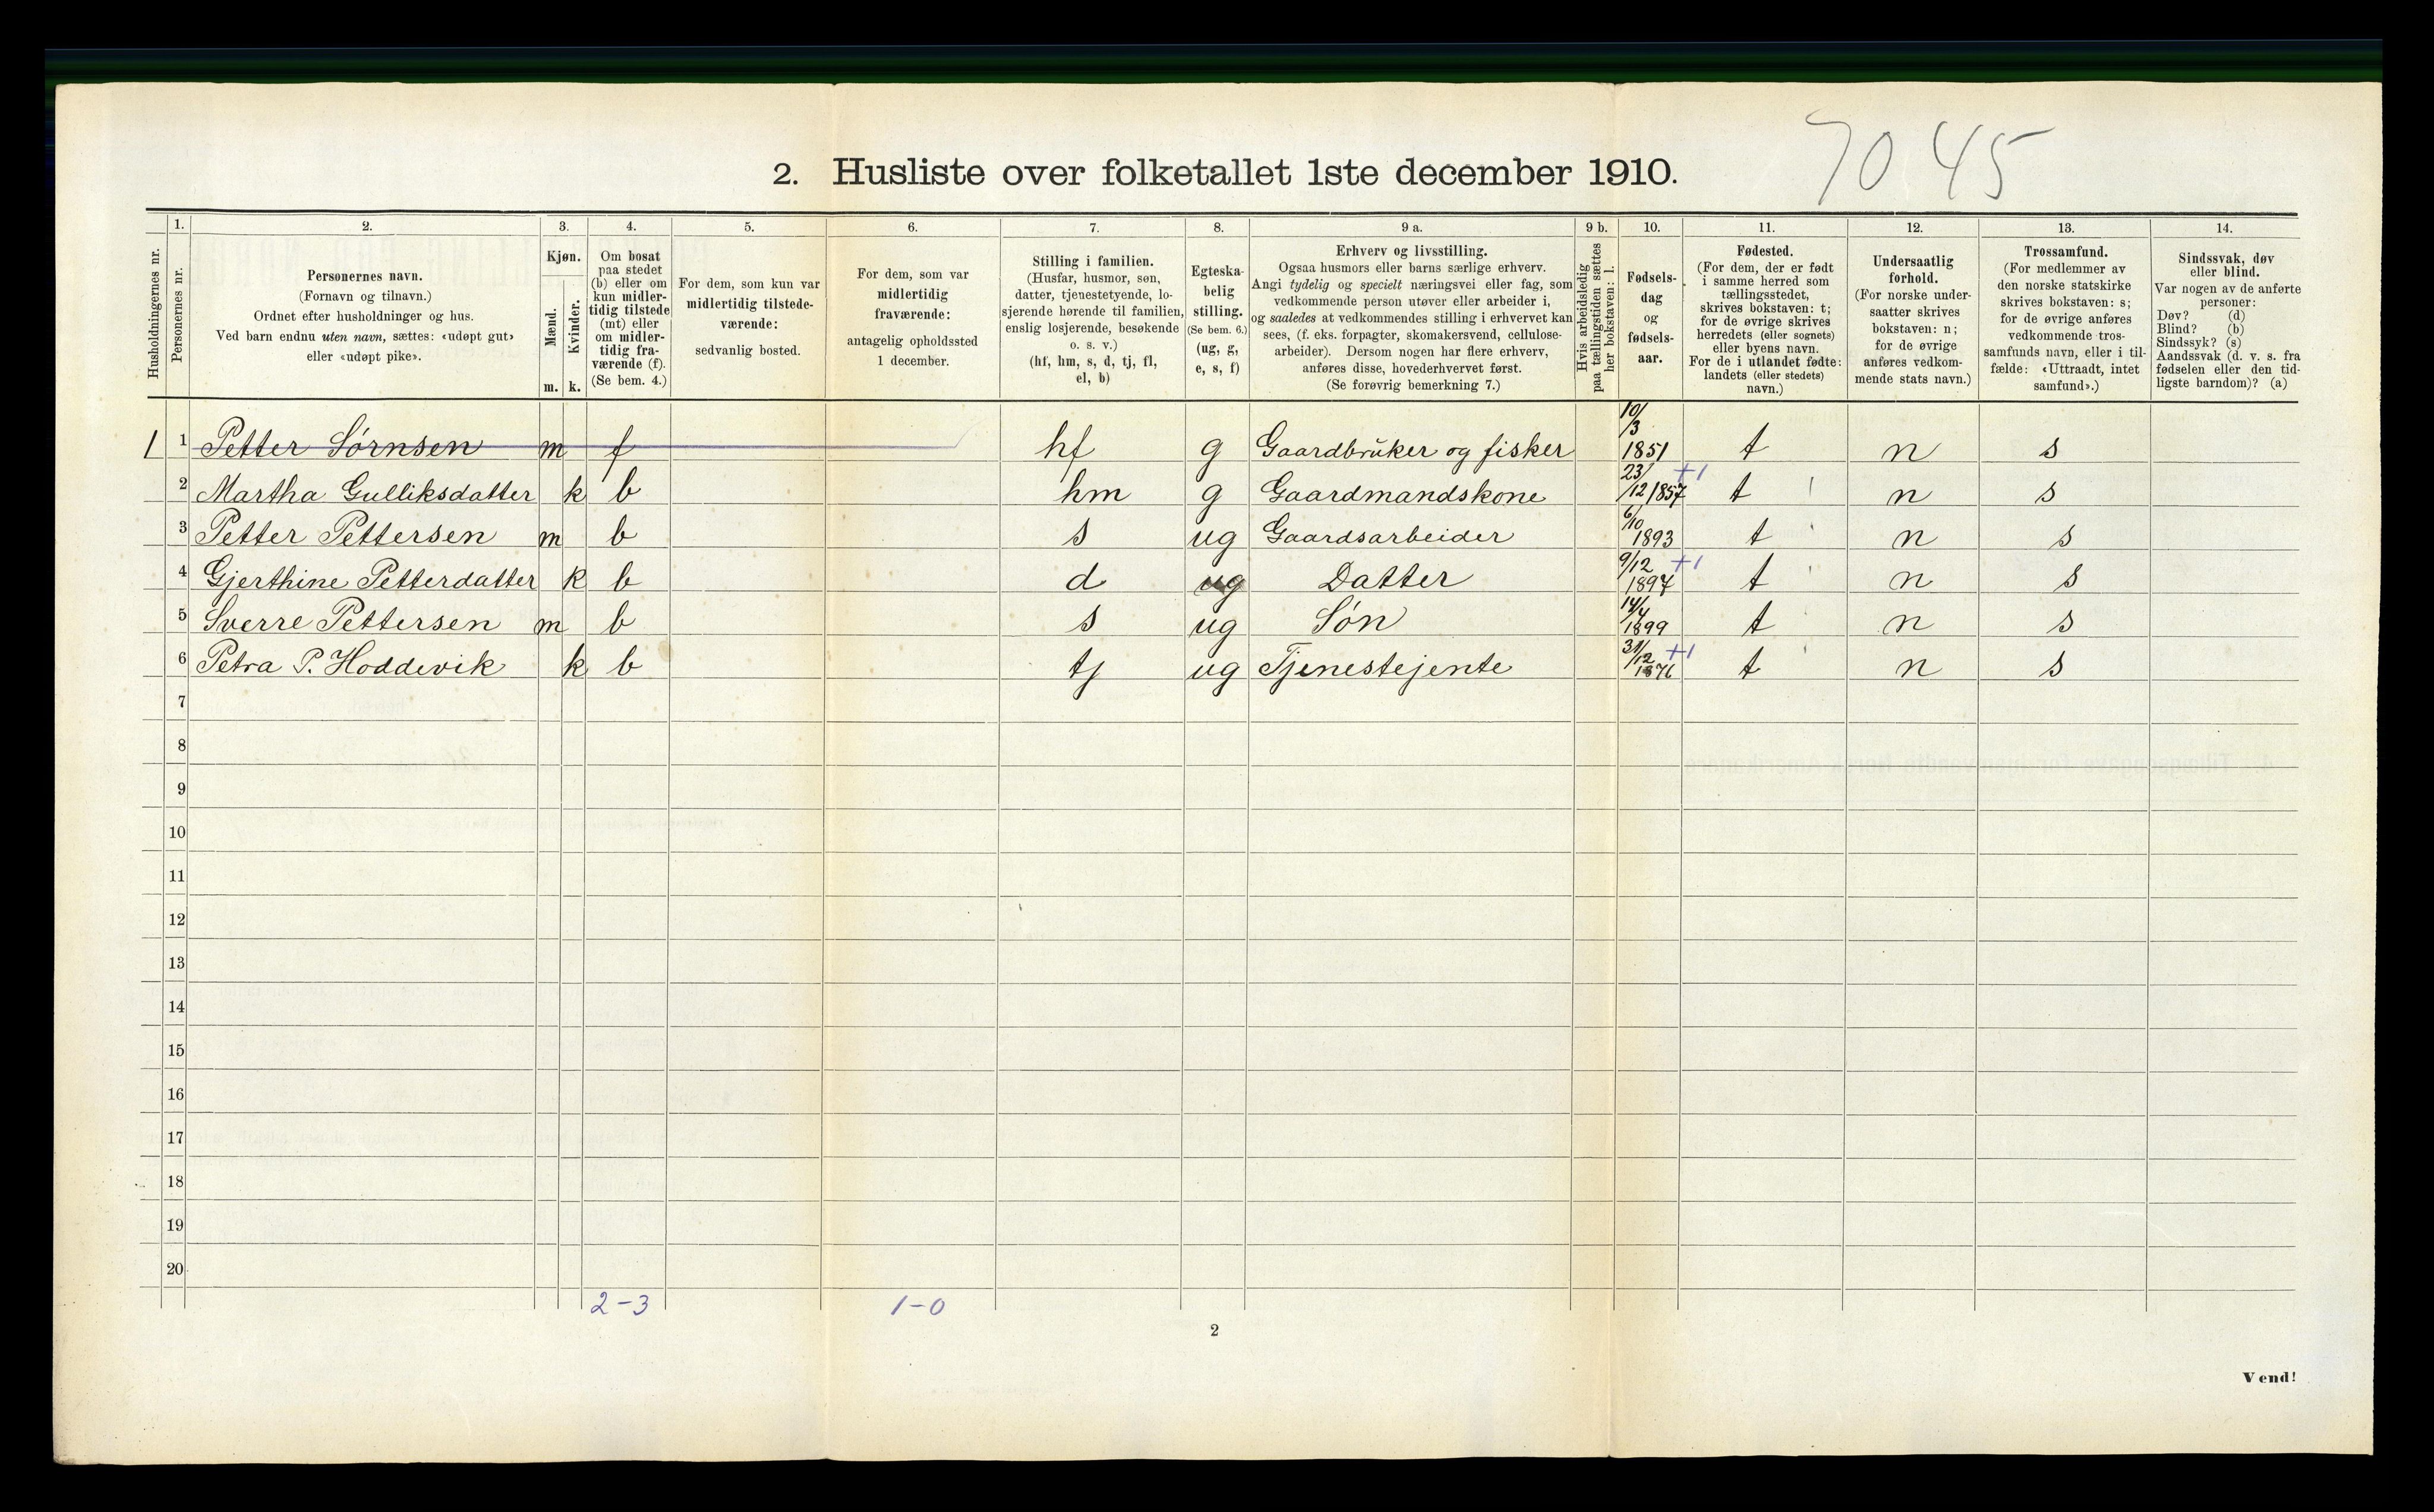 7045
2. Husliste over folketallet 1ste december 1910.
Husholdningernes nr.
1.
Personernes nr.
2.
Personernes navn.
(Fornavn og tilnavn.)
Ordnet efter husholdninger og hus.
Ved barn endnu uten navn, sættes: «udøpt gut»
eller «udøpt pike».
3.
Kjøn.
Mænd.
Kvinder.
m. k.
4.
Om bosat
paa stedet
(b) eller om
kun midler-
tidig tilstede
(mt) eller
om midler-
tidig fra-
værende (f).
(Se bem. 4.)
5.
For dem, som kun var
midlertidig tilstede-
værende:
sedvanlig bosted.
6.
For dem, som var
midlertidig
fraværende:
antagelig opholdssted
1 december.
7.
Stilling i familien.
(Husfar, husmor, søn,
datter, tjenestetyende, lo-
sjerende hørende til familien,
enslig losjerende, besøkende
o. s. v.)
(hf, hm, s, d, tj, fl,
el, b)
8.
Egteska-
belig
stilling.
(Se bem. 6.)
(ug, g,
e, s, f)
9 a.
Erhverv og livsstilling.
Ogsaa husmors eller barns særlige erhverv.
Angi tydelig og specielt næringsvei eller fag, som
vedkommende person utøver eller arbeider i,
og saaledes at vedkommendes stilling i erhvervet kan
sees, (f. eks. forpagter, skomakersvend, cellulose-
arbeider). Dersom nogen har flere erhverv,
anføres disse, hovederhvervet først.
(Se forøvrig bemerkning 7.)
9 b.
Hvis arbeidsledig
paa tællingstiden sættes
her bokstaven: l.
10.
Fødsels-
dag
og
fødsels-
aar.
11.
Fødested.
(For dem, der er født
i samme herred som
tællingsstedet,
skrives bokstaven: t;
for de øvrige skrives
herredets (eller sognets)
eller byens navn.
For de i utlandet fødte:
landets (eller stedets)
navn.)
12.
Undersaatlig
forhold.
(For norske under-
saatter skrives
bokstaven: n;
for de øvrige
anføres vedkom-
mende stats navn.)
13.
Trossamfund.
(For medlemmer av
den norske statskirke
skrives bokstaven: s;
for de øvrige anføres
vedkommende tros-
samfunds navn, eller i til-
fælde: «Uttraadt, intet
samfund».)
14.
Sindssvak, døv
eller blind.
Var nogen av de anførte
personer:
Døv? (d)
Blind? (b)
Sindssyk? (s)
Aandssvak (d. v. s. fra
fødselen eller den tid-
ligste barndom)? (a)
1 1 Petter Sørnsen m f hf g Gaardbruker og fisker 10/3 1851 t n s
2 Martha Gulliksdatter k b hm g Gaardmandskone 23/12 1857 +1 t n s
3 Petter Pettersen m b s ug Gaardsarbeider 6/10 1893 t n s
4 Gjerthine Petterdatter k b d ug Datter 9/12 1897 +1 t n s
5 Sverre Pettersen m b s ug Søn 14/4 1899 t n s
6 Petra P. Hoddevik k b tj ug Tjenestejente 31/12 1876 +1 t n s
7
8
9
10
11
12
13
14
15
16
17
18
19
20
2-3 1-0
2
Vend!